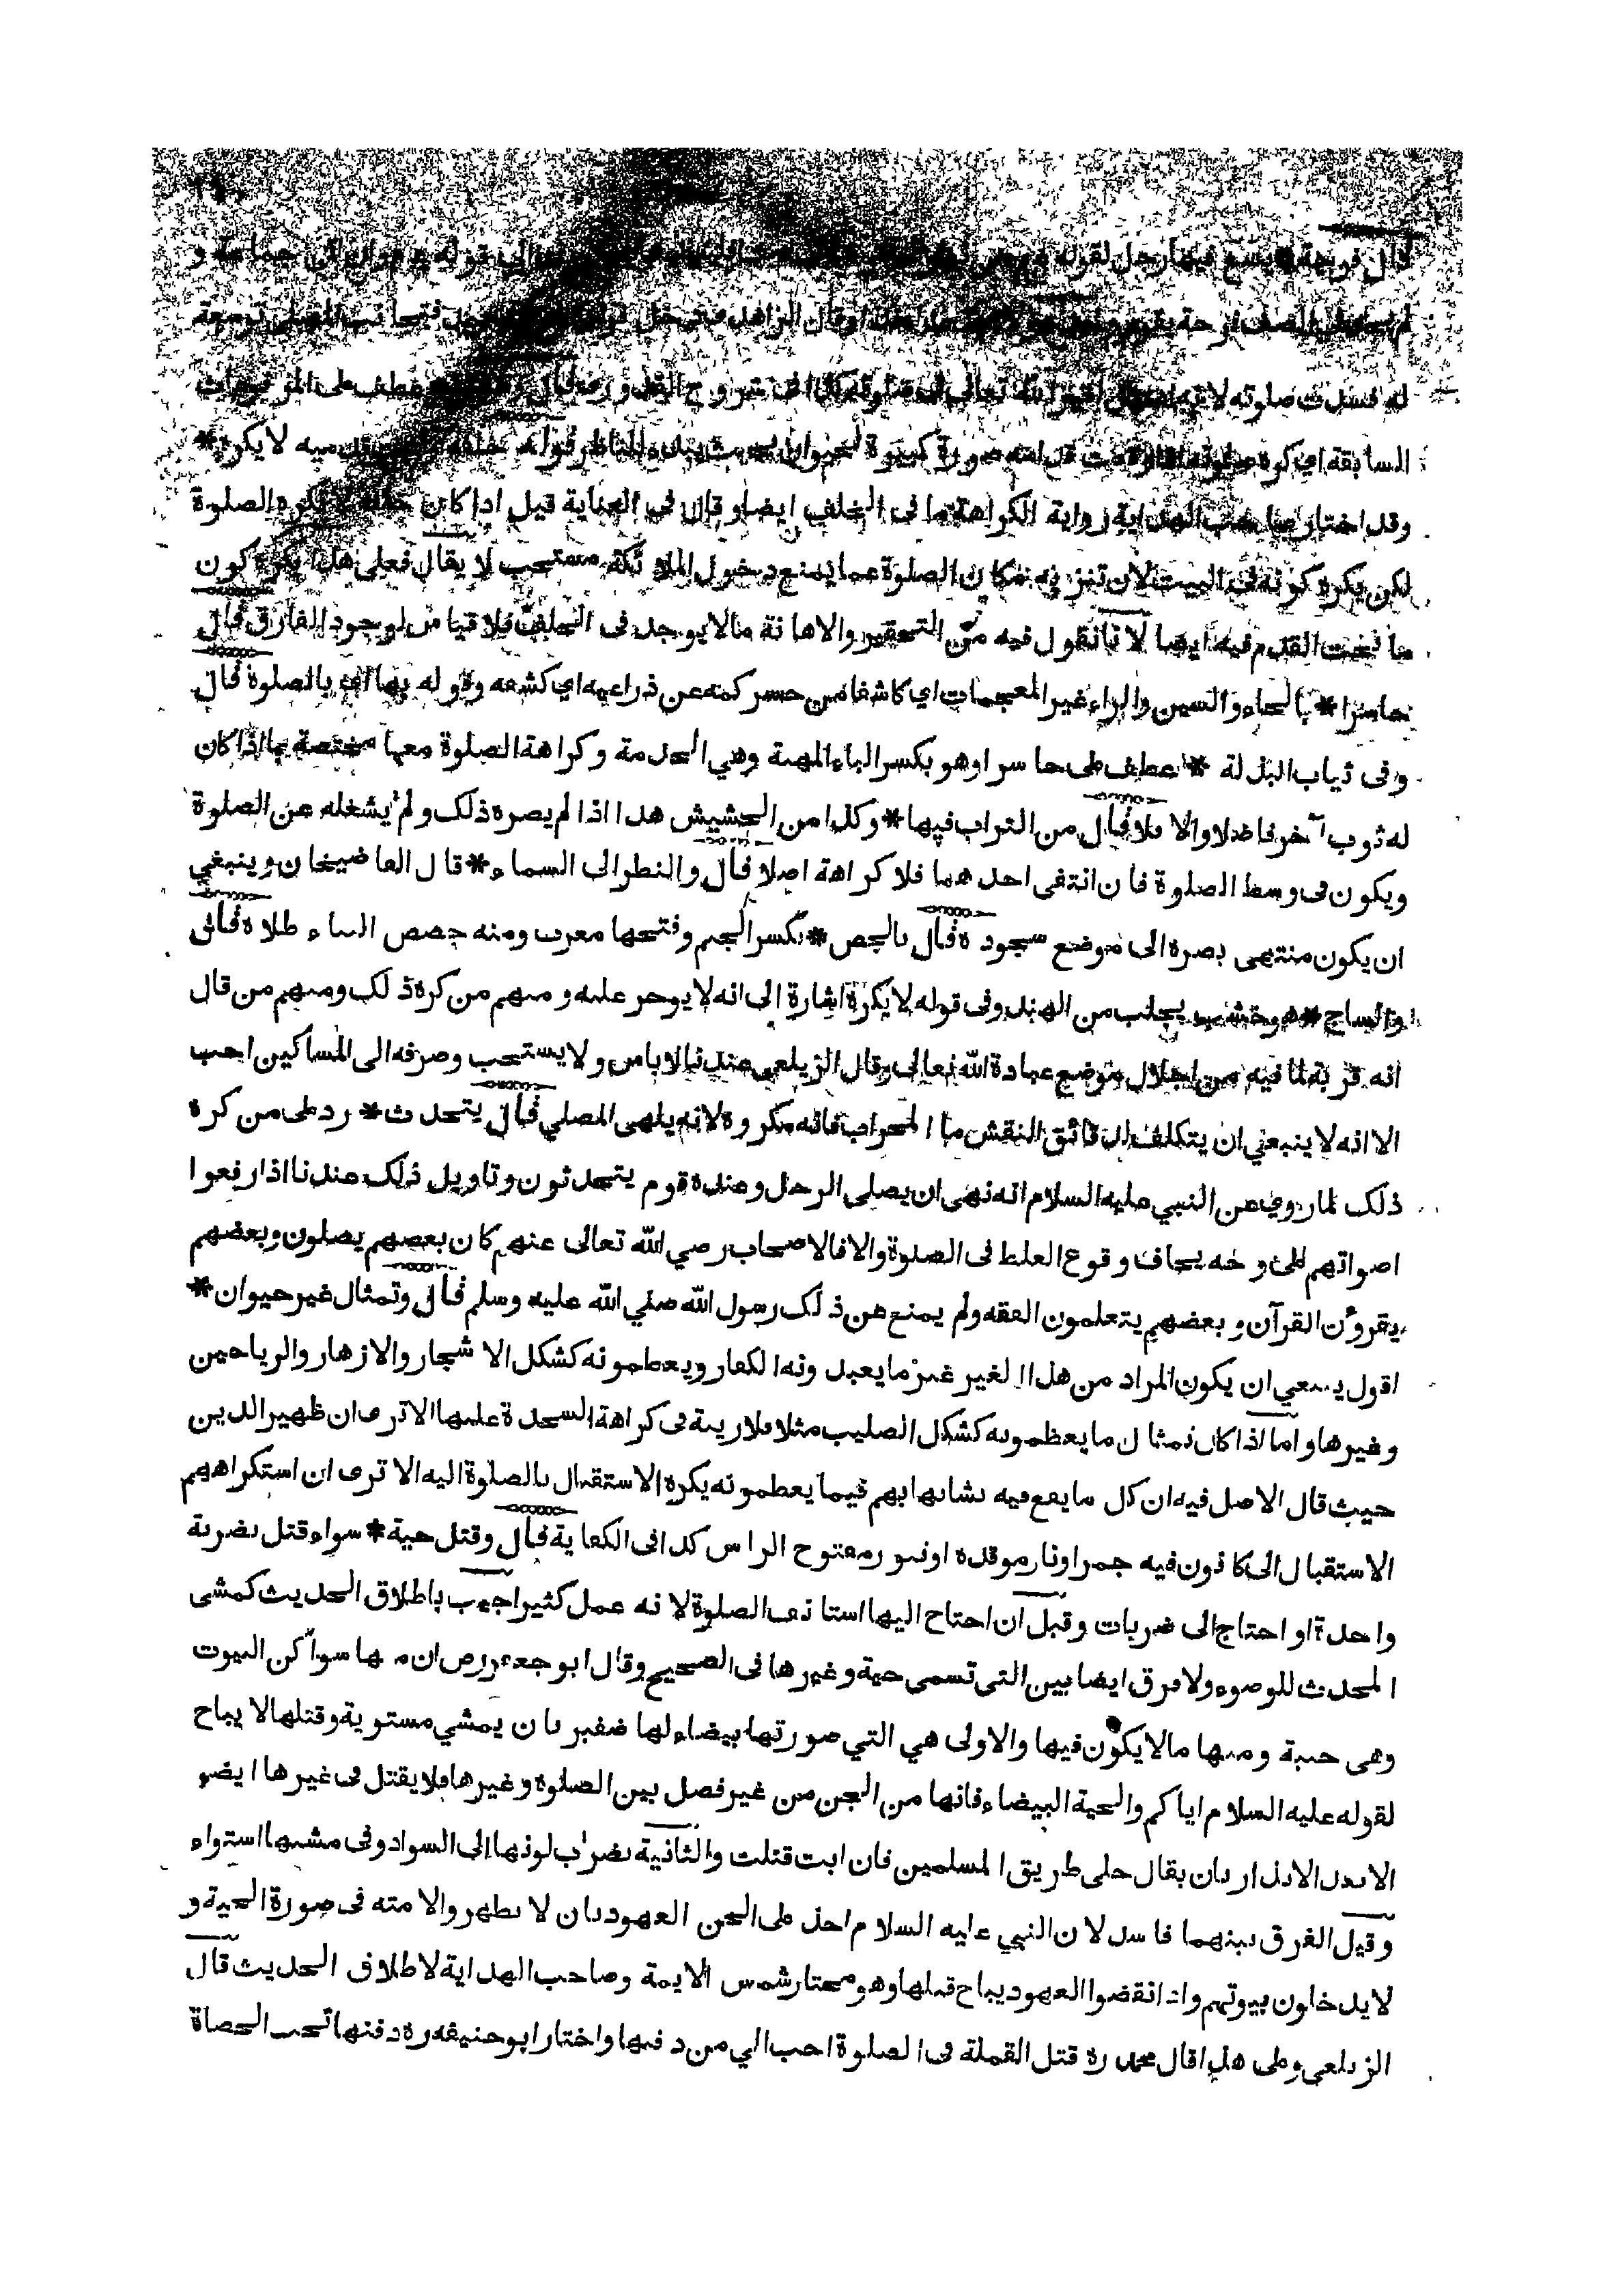 قال فرجة * يسع فيها رجل لقوله
له فسدت صلوته لانه امتثل لغير الله تعالى
السابقة اي كره صلوته صورة الحيوان للناظر قوله خلفه لا يكره *
وقد اختار صاحب الهداية رواية الكراهة ما فى الخلف ايضا وقال فى العناية قيل اذا كان خلفه لا يكره الصلوة
لكن يكره كونه فى البيت لان تنزيه مكان الصلوة عما يمنع دخول الملائكة مستحب لا يقال فعلى هذا يكره كون
ما تحت القدم فيه ايضا لانا نقول فيه من التحقير والاهانة مالا يوجد فى الخلف فلا قياس لوجود الفارق قال
حاسرا * بالحاء والسين والراء غير المعجمات اي كاشفا من حسر كمه عن ذراعيه اي كشفه وقوله بها اي بالصلوة قال
وفى ثياب البذلة * عطف على حاسرا وهو بكسر الباء المهنة وهي الخدمة وكراهة الصلوة معها مختصة بما اذا كان
له ثوب آخر فاضلا والا فلا قال من التراب فيها * وكذا من الحشيش هذا اذا لم يصره ذلك ولم يشغله عن الصلوة
ويكون فى وسط الصلوة فان انتفى احدهما فلا كراهة اصلا قال والنظر الى السماء * قال القاضيخان وينبغي
ان يكون منتهى بصره الى موضع سجوده قال بالجص * بكسر الجيم وفتحها معرب ومنه جصص البناء طلاه قال
والساج * هو خشب يجلب من الهند وفى قوله لا يكره اشارة الى انه لا يوجر عليه ومنهم من كره ذلك ومنهم من قال
انه قربة لما فيه من اجلال موضع عبادة الله تعالى وقال الزيلعي عندنا لا باس ولا يستحب وصرفه الى المساكين احب
الا انه لا ينبغي ان يتكلف الدقائق النقش ما المحراب فانه مكروه لانه يلهى المصلي قال يتحدث * رد على من كره
ذلك لما روي عن النبي عليه السلام انه نهى ان يصلى الرجل وعنده قوم يتحدثون وتاويل ذلك عندنا اذا رفعوا
اصواتهم على وجه يخاف وقوع الغلط فى الصلوة والا فالاصحاب رضي الله تعالى عنهم كان بعضهم يصلون وبعضهم
يقرؤن القرآن وبعضهم يتعلمون الفقه ولم يمنع عن ذلك رسول الله صلي الله عليه وسلم قال وتمثال غير حيوان *
اقول ينبغي ان يكون المراد من هذا الغير غير ما يعبدونه الكفار ويعظمونه كشكل الاشجار والازهار والرياحين
وغيرها واما اذا كان تمثال ما يعظمونه كشكل الصليب مثلا فلا ريبة فى كراهة السجدة عليها الا ترى ان ظهير الدين
حيث قال الاصل فيه ان كل ما يقع فيه تشابها بهم فيما يعظمونه يكره الاستقبال بالصلوة اليه الا ترى ان استكراههم
الاستقبال الى كانون فيه جمر او نار موقدة او تنور مفتوح الراس كذا فى الكفاية قال وقتل حية * سواء قتل بضربة
واحدة او احتاج الى ضربات وقيل ان احتاج اليها استانف الصلوة لانه عمل كثير اجيب باطلاق الحديث كمشى
المحدث للوضوء ولا فرق ايضا بين التى تسمى حية وغيرها فى الصحيح وقال ابو جعفر رض ان منها سواكن البيوت
وهى جنية ومنها مالا يكون فيها والاولى هي التي صورتها بيضاء لها ضفيرتان يمشي مستوية وقتلها لا يباح
لقوله عليه السلام اياكم والحية البيضاء فانها من الجن من غير فصل بين الصلوة وغيرها فلا يقتل فى غيرها ايضو
الا بعد الانذار بان يقال خلى طريق المسلمين فان ابت قتلت والثانية يضرب لونها الى السواد وفى مشيها استواء
وقيل الفرق بينهما فاسد لان النبي عليه السلام اخذ على الجن العهود بان لا يظهر والامته فى صورة الحية و
لا يدخلون بيوتهم واذا نقضوا العهود يباح قتلها وهو مختار شمس الايمة وصاحب الهداية لاطلاق الحديث قال
الزيلعى وعلى هذا قال محمد ره قتل القملة فى الصلوة احب الي من دفنها واختار ابو حنيفه ره دفنها تحت الحصاة